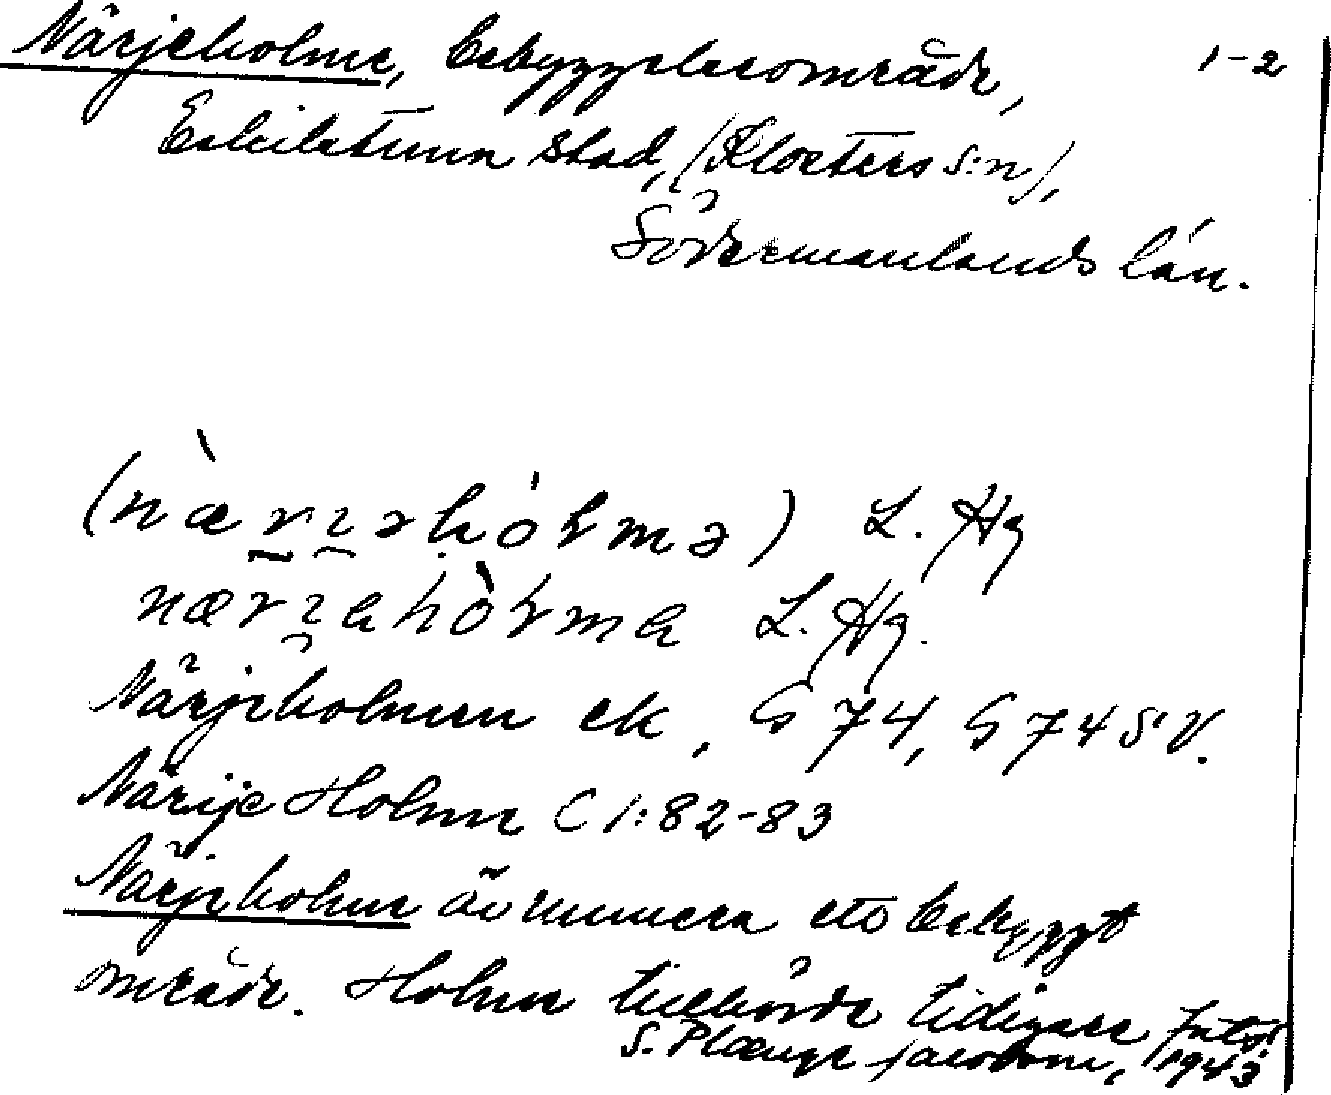 Närjeholme, bebyggelseområde, 1-2
Eskilstuna stad, (Klosters s:n),
Södermanlands län.
(næ̀rjəhólmə) L. Hg
nærjahòlma L. Hg.
Närjeholmen ek, G 74, G 74 SV.
Närije Holme C 1:82-83
Närjeholme är numera ett bebyggt
område. Holme tillhörde tidigare
S. Plænge Jacobson, 1943